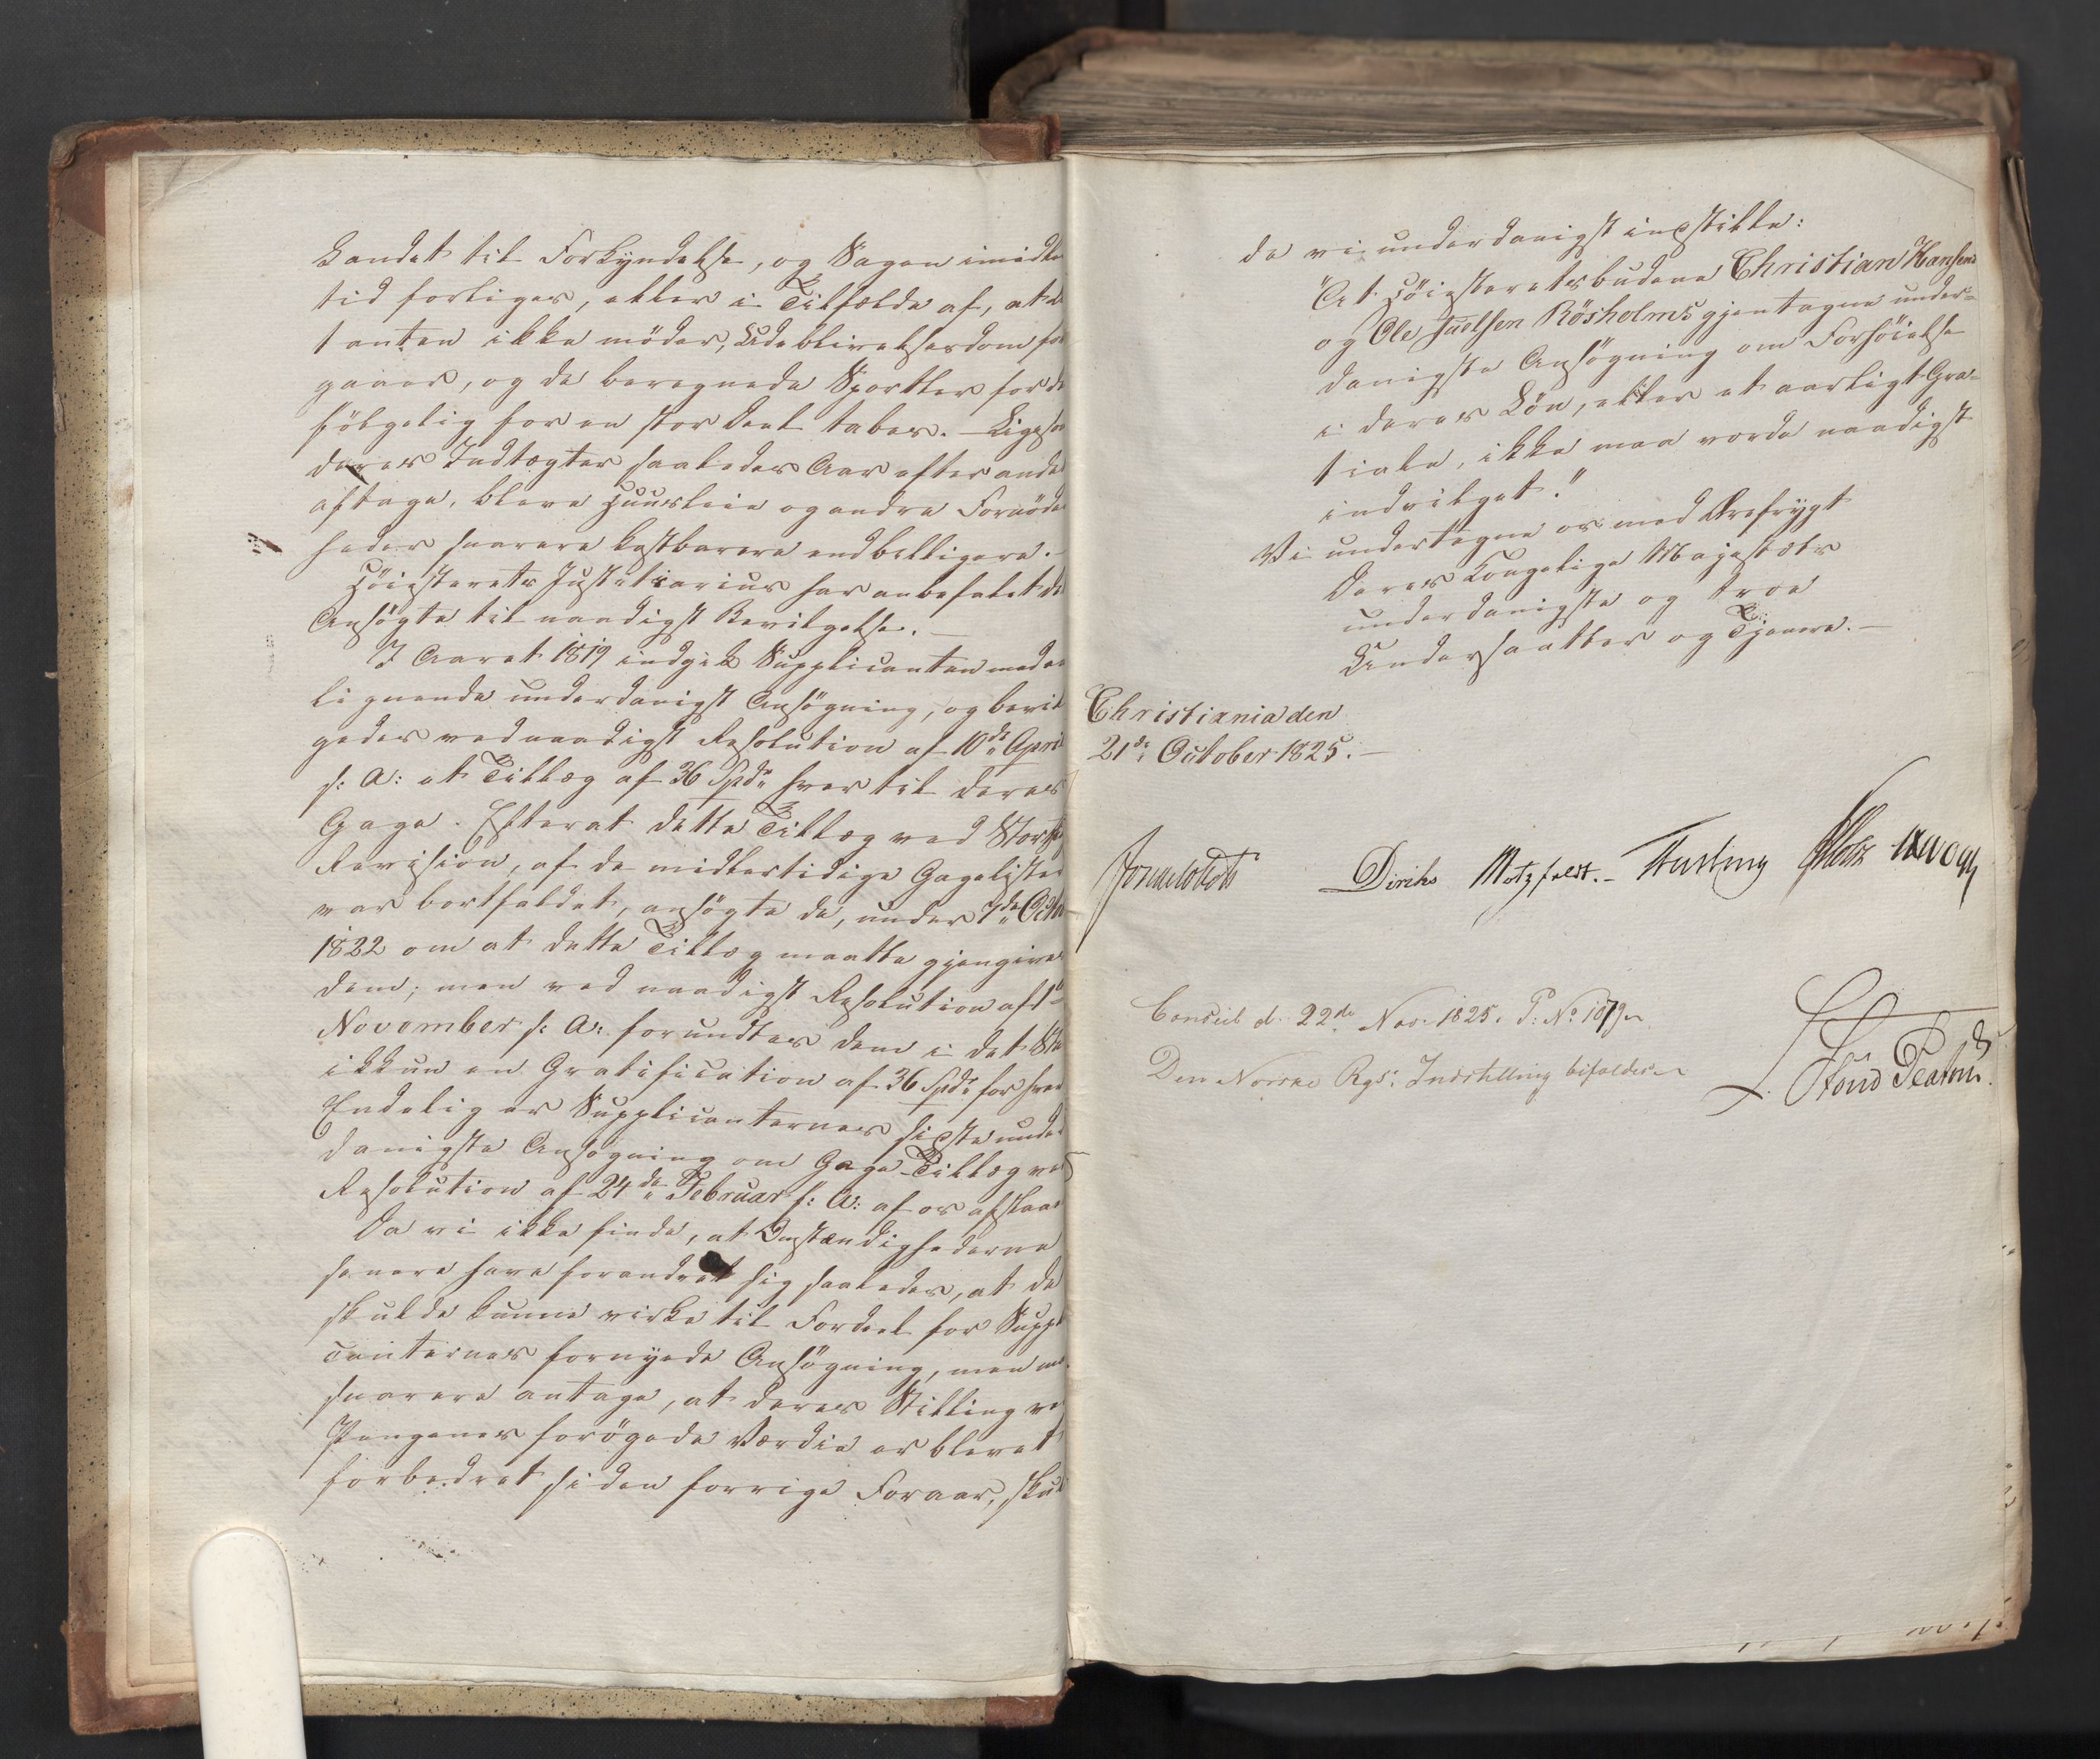 Landet til Forkyndelse, og Sagen imidler
tid forliges, eller i Tilfælde af, at Ci
tanten ikke møder, Udeblivelsesdom for
gaaer, og de beregnede Sportler for de
følgelig for en stor Deel tabes. – Ligesom
deres Indtægter saaledes Aar efter andet
aftage, bleve Huusleie og andre Fornöden
heder snarere kostbarere end billigere. –
Höiesterets Justitiarius har anbefalet det
Ansögte til naadigst Bevilgelse. –
I Aaret 1819 indgik Supplicanten med en
lignende underdanigst Ansögning, og bevil
gedes ved naadigst Resolution af 10de April
s: A: et Tillæg af 36 Spdr hver til deres
Gage. Efterat dette Tillæg ved Storth
Revision, af de midlertidige Gagelister
var bortfaldet, ansögte de, under 7de Octb
1822 om at dette Tillæg maatte gjengives
dem; men ved naadigst Resolution af 1ste
November s: A: forundtes dem i det Ste
ikkun en Gratification af 36 Spdr for hver
Endelig er Supplicanternes sidste under
danigste Ansögning om Gage-Tillæg ved
Resolution af 24de Februar h: A: af os afslaaet
Da vi ikke finde, at Omstændighederne
senere have forandret sig saaledes, at de
skulde kunne virke til Fordeel for Suppli
canternes fornyede Ansögning, men me
snarere antage, at deres Stilling ve
Pengenes forögede Værdie er blevet
forbedret siden forrige Foraar, skul
de vi underdanigst indstille:
"At Höiesteretsbudene Christian Hansens
og Ole Juelsen Rösholms gjentagne under=
danigste Ansögning om Forhöielse
i deres Lön, eller et aarligt Gra=
tiale, ikke maa vorde naadigst
indvilget."
Vi undertegne os med Ærefrygt
Deres Kongelige Majestæts
underdanigste og troe
Undersaatter og Tjenere. –
Christiania den
21de October 1825. –
Diriks Motzfeldt. –
Conseil d. 22de Nov. 1825. P: No 1079
Den Norske Rgs: Indstilling bifaldes